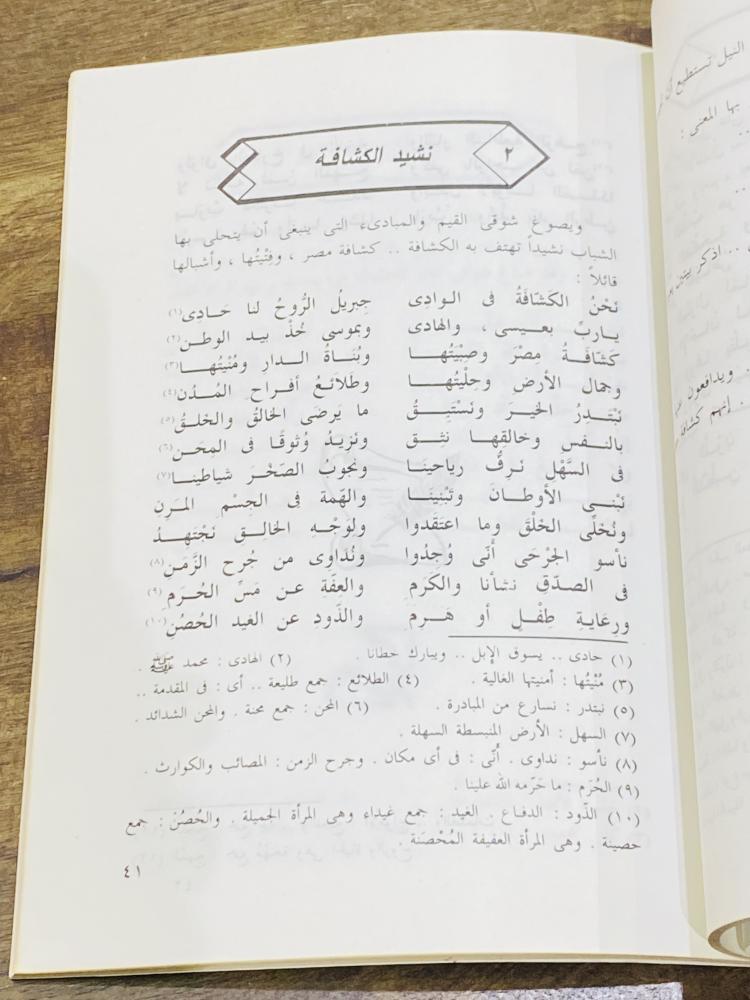 ٢ نشيد الكشافة
ويصوغ شوقى القيم والمبادىء التى ينبغى أن يتحلى بها
الشباب نشيداً تهتف به الكشافة .. كشافة مصر ، وفتْيتُها ، وأشبالها
قائلاً :
نَحْنُ الكَشّافَةُ فى الـوادِى جِبريلُ الرُّوحُ لنا حَـادِى(١)
ياربِّ بعيسى ، والهادى وبموسى خُذْ بيد الوطن(٢)
كَشّافَـةُ مِصْرَ وصِبْيَتُهـا وبُنَـاةُ الـدار ومُنْيتُهـا(٣)
وجمال الأرض وحِلْيتُهـا وطَلائعُ أفـراح المُـدُن(٤)
نَبْتدِرُ الخيـرَ ونَسْتبِـقُ ما يَرضَى الخالقُ والخلقُ(٥)
بالنـفسِ وخالقِهـا نثـق ونَزيـدُ وُثوقًـا فى المِحَـن(٦)
فى السَّهْلِ نَرِفُّ رياحينَـا ونجوبُ الصَّخْرَ شياطينـا(٧)
نَبْنـى الأوطـانَ وتَبْنِينَـا والهِمّة فى الجسْمِ المـرَنِ
ونُخَلّى الخلْقَ وما اعتقَدوا ولِوَجْـهِ الخالـق نَجْتهـدُ
نأسو الجَرْحَى أنّى وُجِدُوا ونُدَاوى من جُرح الزَّمَنِ(٨)
فى الصـدْقِ نشأنا والكَرَمِ والعِفّةِ عن مَسِّ الحُـرَم(٩)
ورِعَايةِ طِفْـلٍ أو هَـرِمَ والذّودِ عن الغيد الحُصُن(١٠)
(١) حادى .. يسوق الإبل .. ويبارك خطانا . (٢) الهادى : محمد ﷺ .
(٣) مُنْيتُها : أمنيتها الغالية . (٤) الطلائع : جمع طليعة .. أى : فى المقدمة ..
(٥) نبتدر : نسارع من المبادرة . (٦) المحن : جمع محنة . والمحن الشدائد .
(٧) السهل : الأرض المنبسطة السهلة .
(٨) نأسو : نداوى . أنّى : فى أى مكان . وجرح الزمن : المصائب والكوارث .
(٩) الحُرَم : ما حَرّمه الله علينا .
(١٠) الذّود : الدفـاع . الغيد : جمع غيداء وهى المرأة الجميلة . والحُصُن : جمع
حصينة . وهى المرأة العفيفة المُحْصَنة .
٤١
النيل تستطيع أن
بها المعنى :
.. اذكر بيتين
ويدافعون عن
.. إنهم كشافة